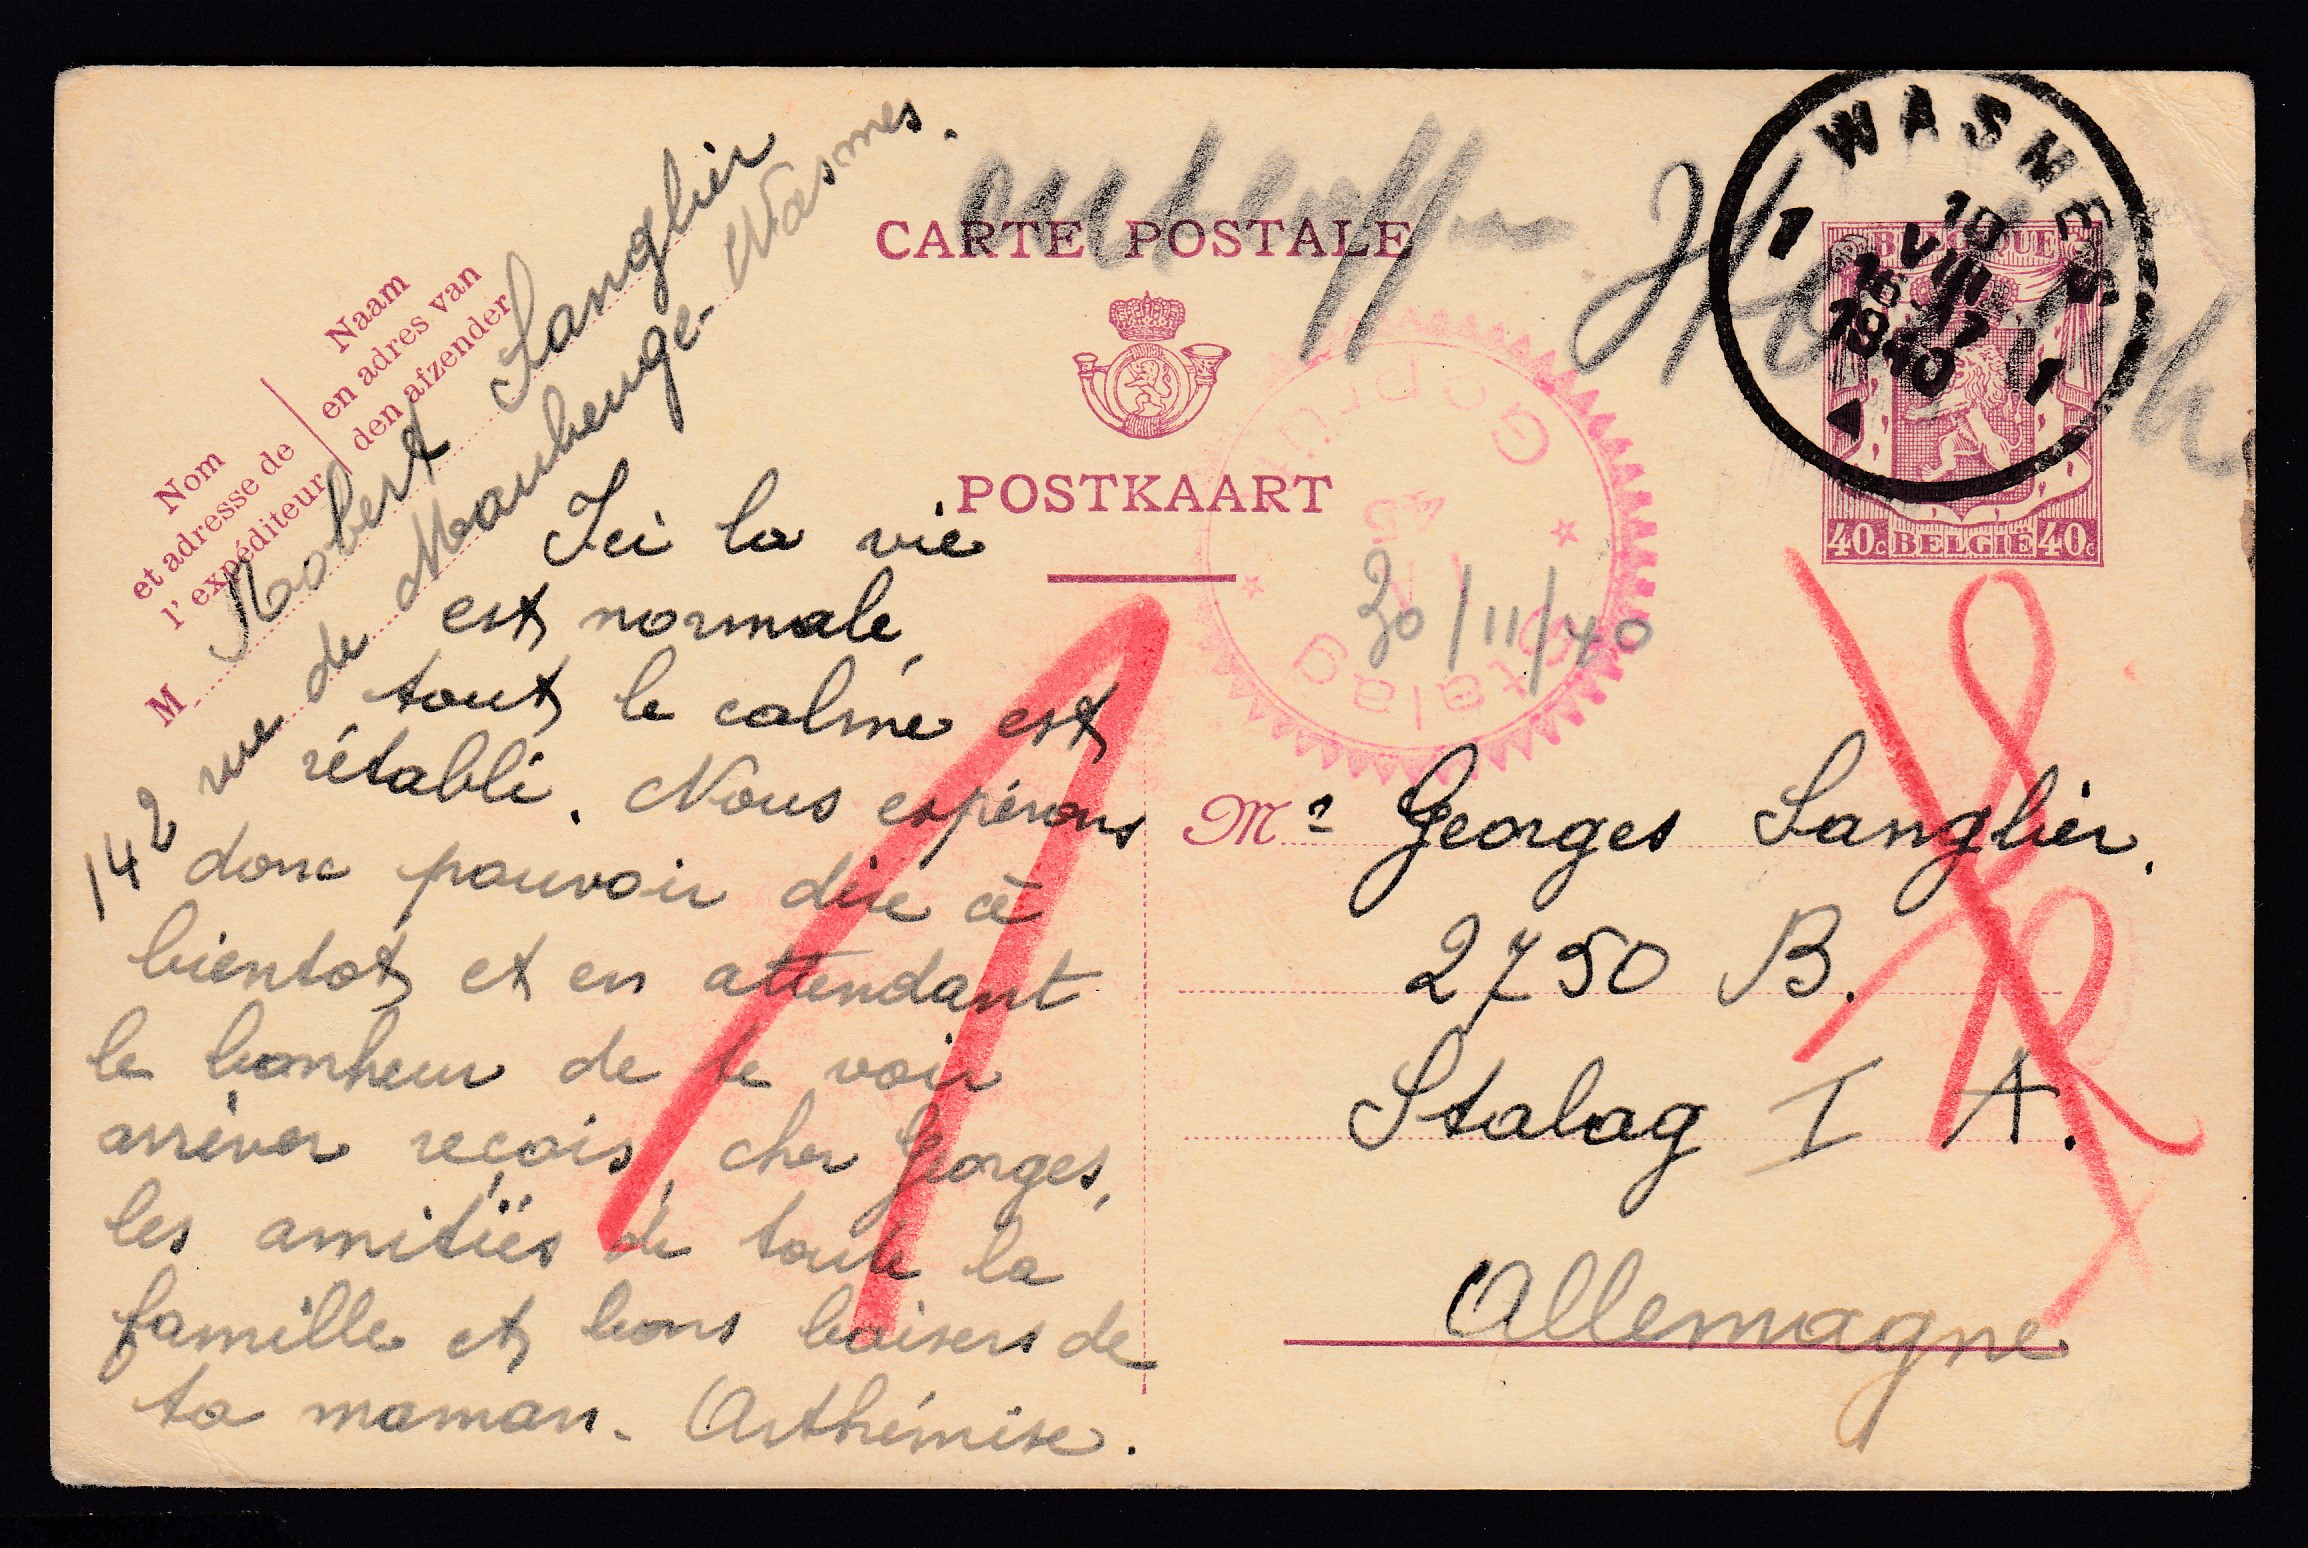 CARTE POSTALE
POSTKAART
Nom
et adresse de
l'expéditeur
Naam
en adres van
den afzender
M Robert Sanglier
142 rue de Maubeuge - Wasmes.
Ici la vie
est normale,
tout le calme est
rétabli. Nous espérons
donc pouvoir dire à
bientot et en attendant
le bonheur de te voir
arriver reçois, cher Georges,
les amitiés de toute la
famille et bons baisers de
ta maman. Arthémise.
WASMES
1 1
10
VIII
16-17
1940
BELGIQUE
40c BELGIË 40c
Geprüft
45
Stalag
30/11/40
Mr Georges Sanglier.
2750 B.
Stalag I A.
Allemagne